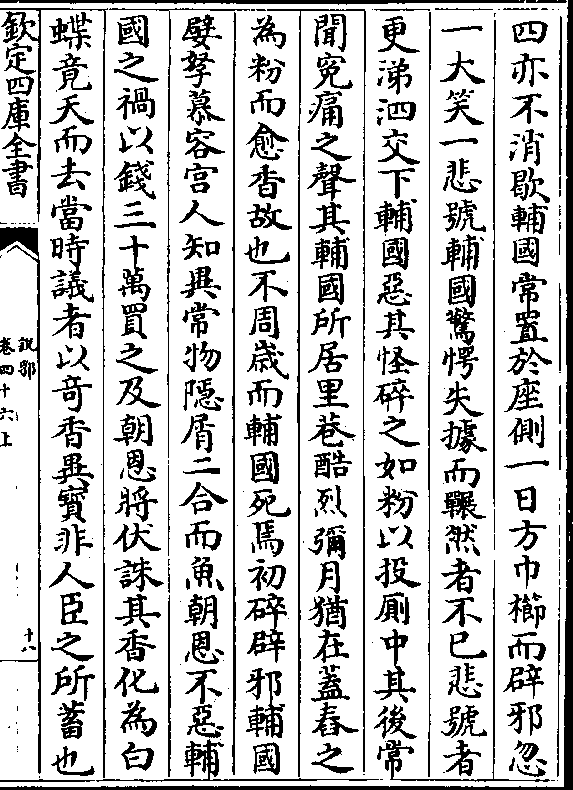 四亦不消歇輔國常置於座側一日方巾櫛而辟邪忽
一大笑一悲號輔國驚愕失據而囅然者不已悲號者
更涕泗交下輔國惡其怪碎之如粉以投厠中其後常
聞寃痛之聲其輔國所居里巷酷烈彌月猶在蓋舂之
為粉而愈香故也不周歳而輔國死焉初碎辟邪輔國
嬖孥慕容宫人知異常物隠屑二合而魚朝恩不惡輔
國之禍以錢三十萬買之及朝恩將伏誅其香化為白
蝶竟天而去當時議者以竒香異寳非人臣之所蓄也
欽定四庫全書
説郛
卷四十六上
十八